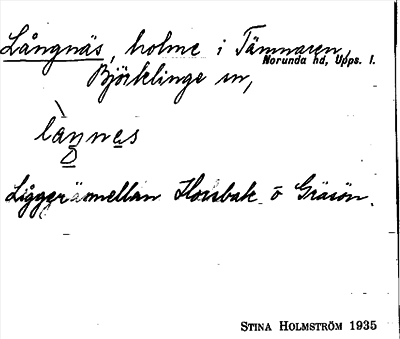 Långnäs, holme i Tämnaren,
Norunda hd, Upps. l.
Björklinge sn,
làŋnes
Ligger mellan Horsbak o Gräsön.
STINA HOLMSTRÖM 1935